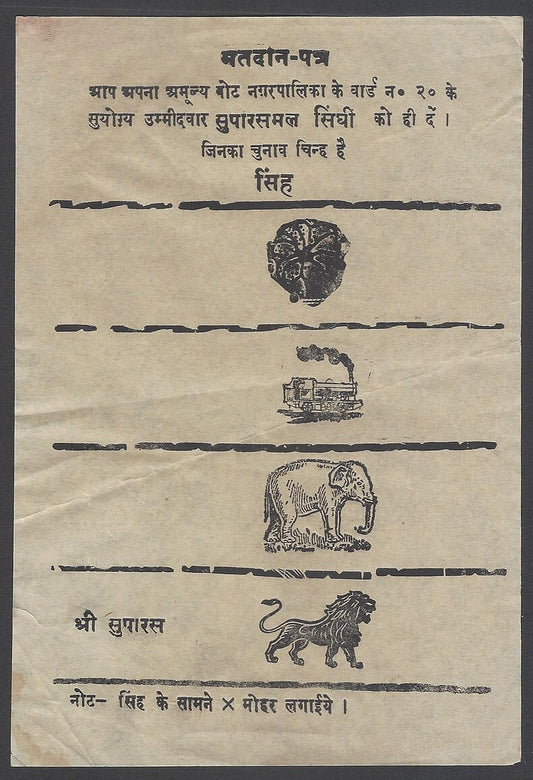 मतदान-पत्र
आप अपना अमूल्य वोट नगरपालिका के वार्ड न० २० के
सुयोग्य उम्मीदवार सुपारसमल सिंघीं को ही दें ।
जिनका चुनाव चिन्ह है
सिंह
श्री सुपारस
नोट– सिंह के सामने × मोहर लगाईये ।